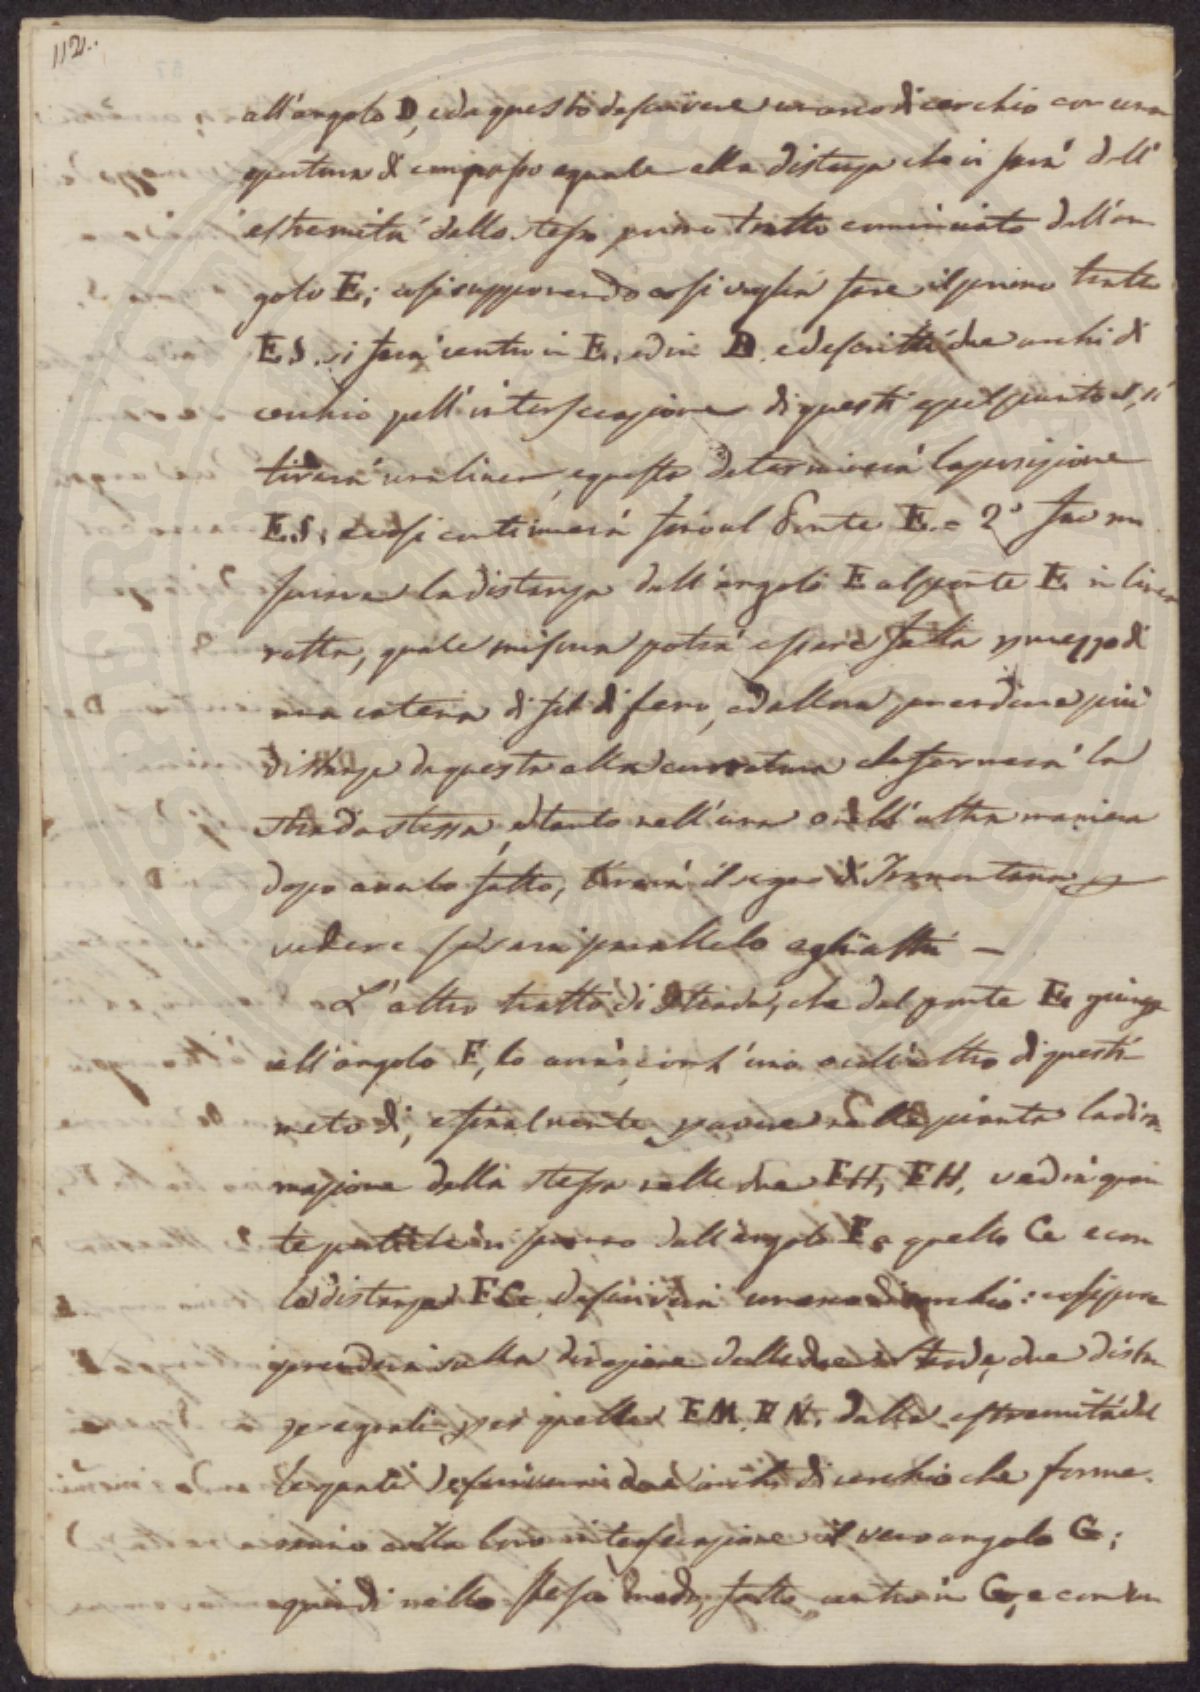 112.
all'angolo D, e da questo descrivere un arco di cerchio con una
apertura di compasso eguale alla distanza che vi sarà dall'
estremità dello stesso primo tratto cominciato dall'an
golo E; così supponendo così voglia fare il primo tratto
ES. si farà centro in E, ed in D. e descritti due archi di
cerchio nell'intersecazione di questi, e pel punto S, si
tirerà una linea, e questa determinerà la posizione
ES, e così continuerà fino al Ponte E. = 2° Se mi
surava la distanza dall'angolo E al ponte E in linea
retta, quale misura potrà essere fatta per mezzo di
una catena di fil di ferro, ed allora prendere più
distanze da questa alla curvatura che formerà la
strada stessa, e tanto nell'una o nell'altra maniera
dopo averlo fatto, tirerà il segno di Tramontana
vedere se sarà parallelo agli altri —
L'altro tratto di Strada, che dal ponte E, giunge
all'angolo F, lo avrà, con l'uno o coll'altro di questi
metodi, e finalmente, per avere nella pianta la dira
mazione della stessa nelle due FH, FH, vedrà quan
te pertiche vi sono dall'angolo F a quello C e con
la distanza FC descriverà un arco di cerchio: così pure
prenderà sulla direzione delle due strade, due distan
ze eguali per quelle FM, FN, dalla estremità del
le quali descriverà due archi di cerchio che forme
ranno colla loro intersecazione il vero angolo G;
quindi nello stesso modo, fatto centro in G, e con un